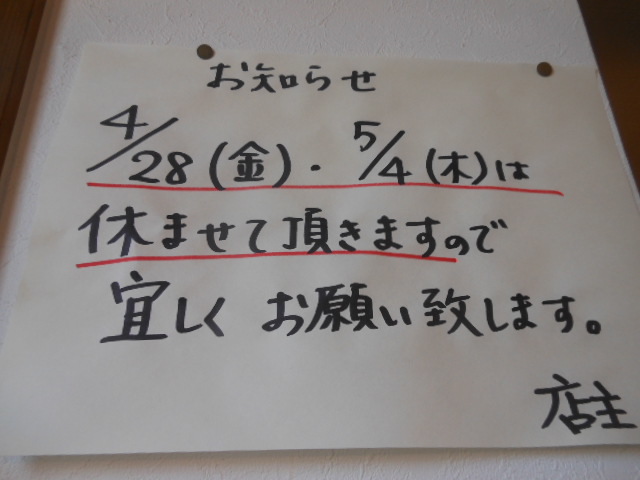 お知らせ
4/28(金)・5/4(木)は
休ませて頂きますので
宜しくお願い致します。
店主